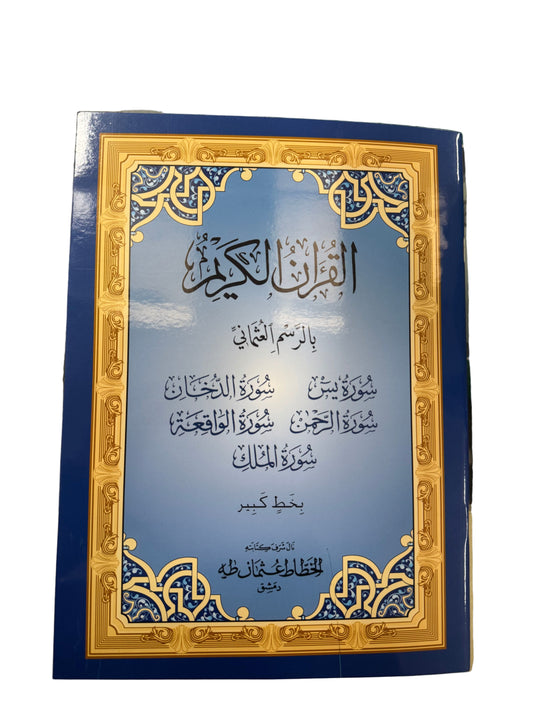 القُرْآنُ الكَرِيْمُ
بِالرَّسْمِ العُثْمَانِيِّ
سُورَة يسَ سُورَة الدُّخَان
سُورَة الرَّحْمٰن سُورَة الوَاقِعَة
سُورَة المُلْكِ
بِخَطٍ كَبِير
نَالَ شَرَف كِتَابَتِهِ
الخَطَّاط عُثْمَان طٰهٰ
دِمَشْق